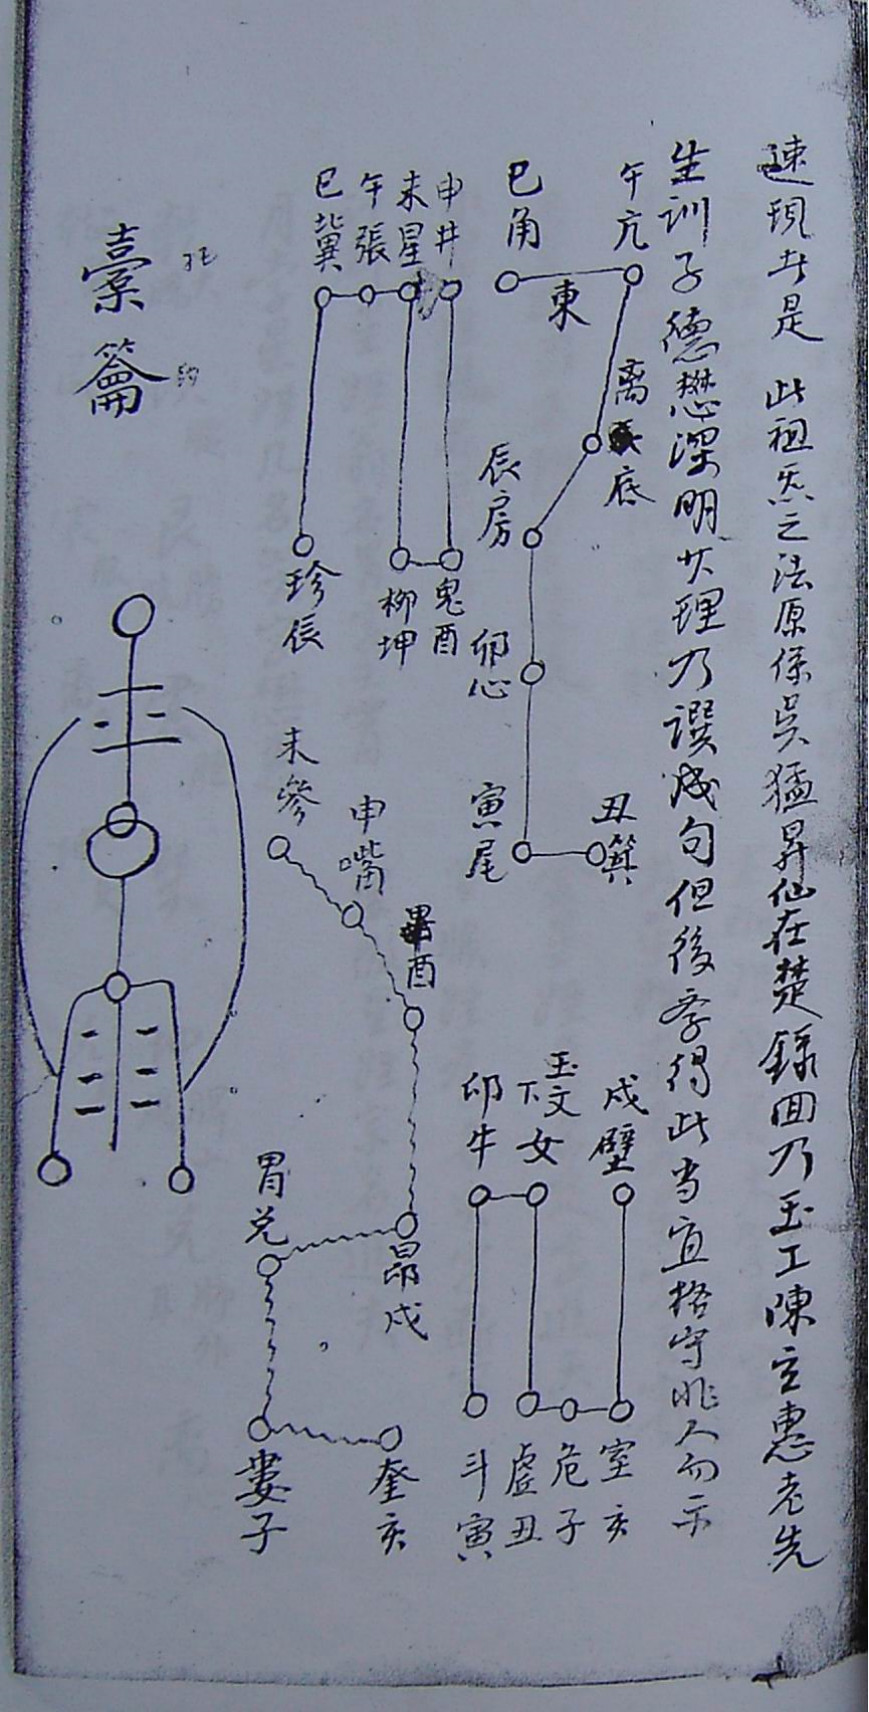 速現者是 此祖炁之法原係吳猛昇仙在楚録囬乃玉工陳立惠老先
生訓子德懋深明大理乃譔成句但後孝得此当宜格守非人勿示
午亢
巳角
東
离
底
辰房
卯心
寅尾
丑箕
申井
未星
午張
巳冀
珍辰
柳坤
鬼酉
未參
申嘴
畢酉
昴戍
胃兑
婁子
奎亥
戍壁
玉文
下女
卯牛
室亥
危子
虚丑
斗寅
橐籥